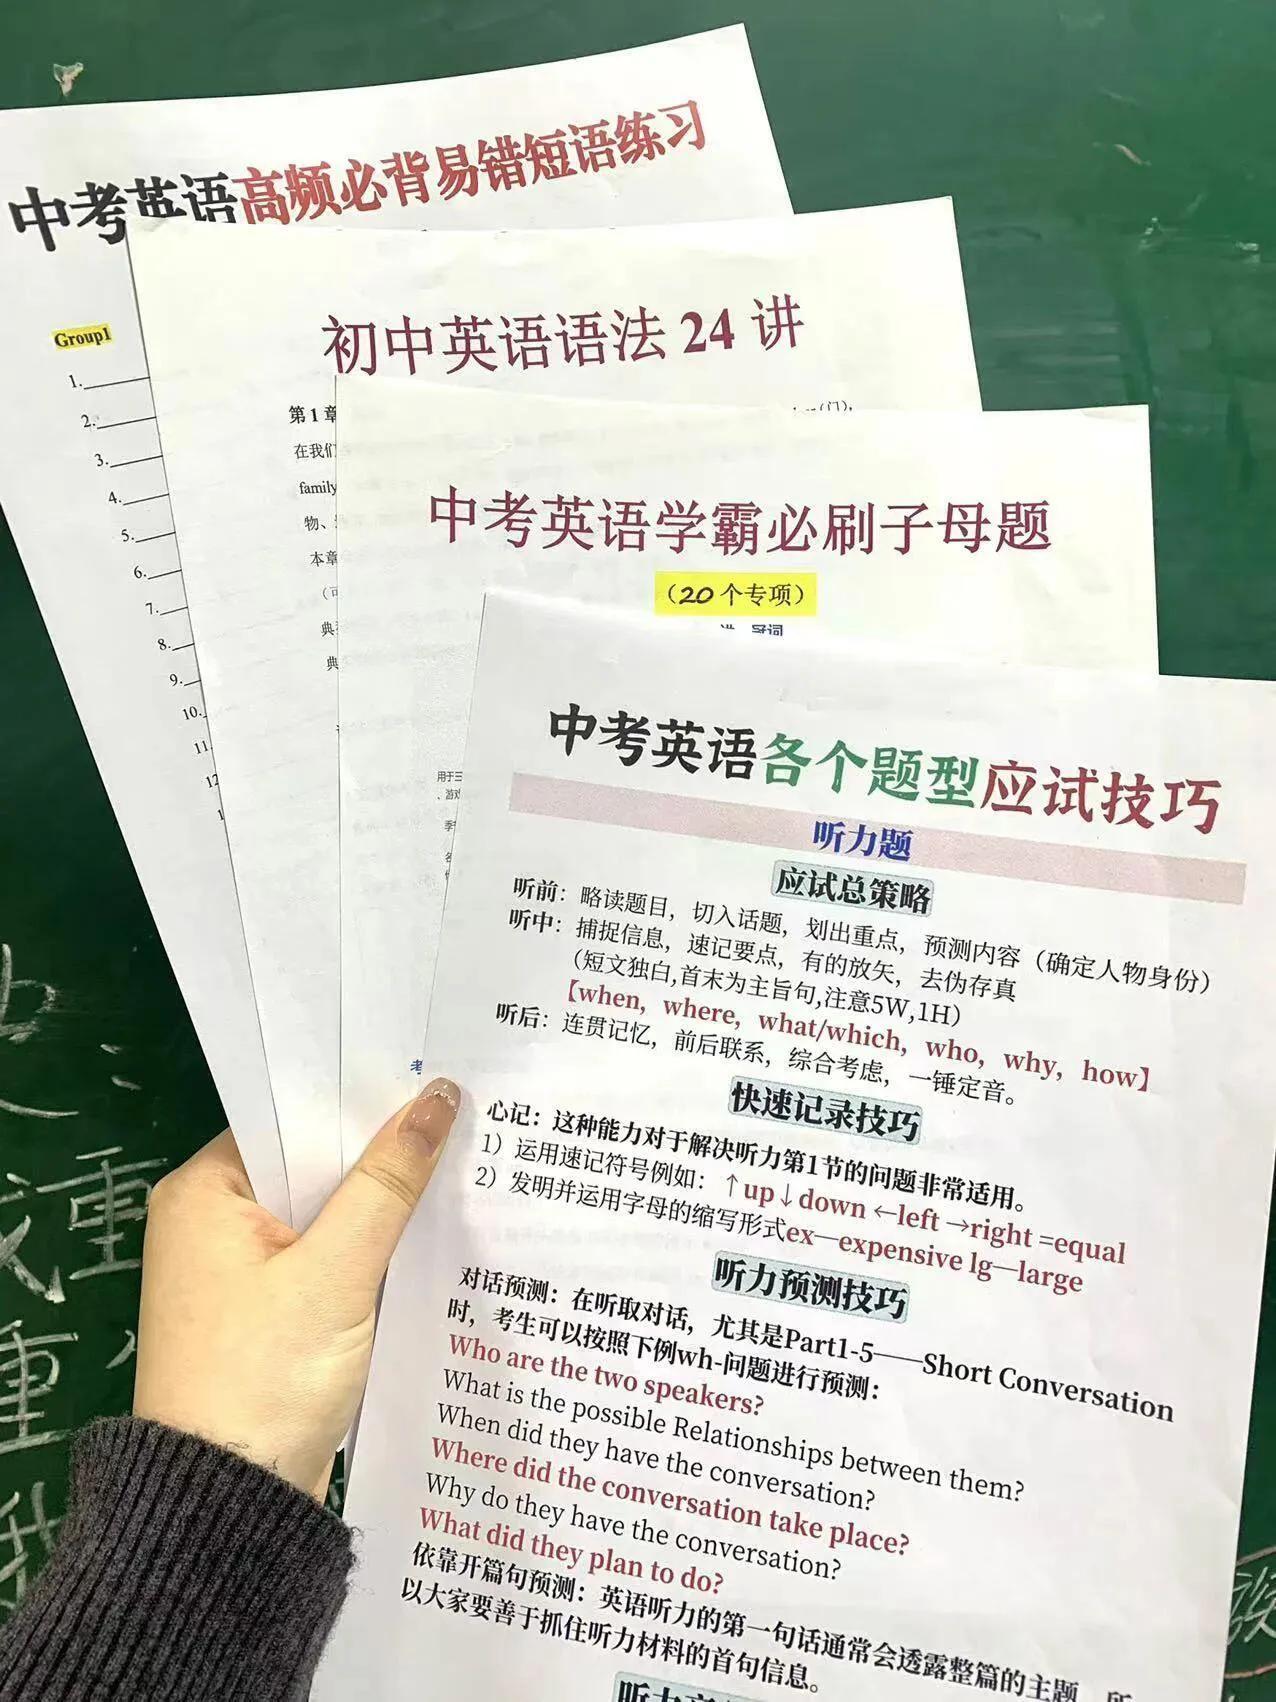 中考英语高频必背易错短语练习
Group1
1.
2.
3.
4.
5.
6.
7.
8.
9.
10.
11
12
1
初中英语语法 24 讲
第 1 章
(门),
在我们
family
物、
本章
典
典
中考英语学霸必刷子母题
（20 个专项）
冠词
用于三
、游戏
季
考
中考英语各个题型应试技巧
听力题
应试总策略
听前：略读题目，切入话题，划出重点，预测内容（确定人物身份）
听中：捕捉信息，速记要点，有的放矢，去伪存真
（短文独白,首末为主旨句,注意5W,1H）
【when，where，what/which，who，why，how】
听后：连贯记忆，前后联系，综合考虑，一锤定音。
快速记录技巧
心记：这种能力对于解决听力第1节的问题非常适用。
1）运用速记符号例如：↑up↓down ←left →right =equal
2）发明并运用字母的缩写形式ex—expensive lg—large
听力预测技巧
对话预测：在听取对话，尤其是Part1-5——Short Conversation
时，考生可以按照下例wh-问题进行预测：
Who are the two speakers?
What is the possible Relationships between them?
When did they have the conversation?
Where did the conversation take place?
Why do they have the conversation?
What did they plan to do?
依靠开篇句预测：英语听力的第一句话通常会透露整篇的主题，所
以大家要善于抓住听力材料的首句信息。
听力
重
重
我